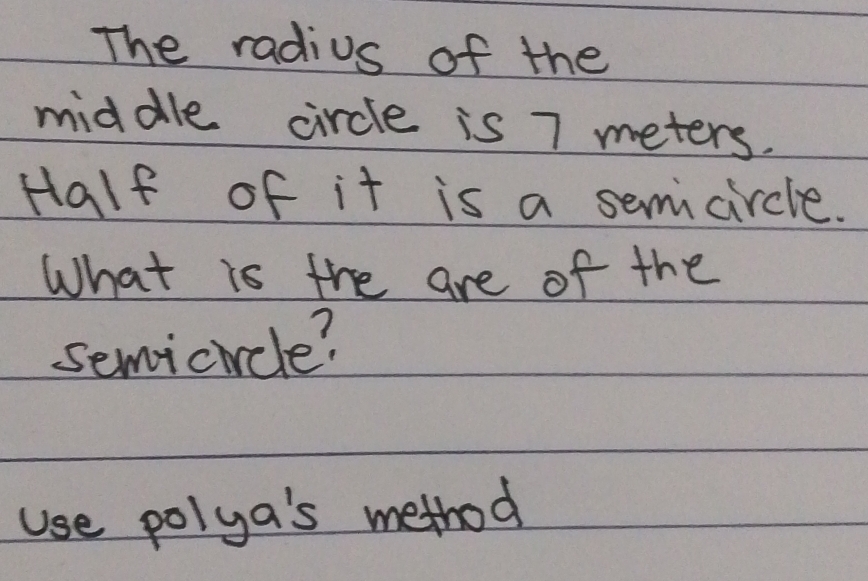 The radius of the
middle circle is 7 meters.
Half of it is a semicircle.
What is the are of the
semicircle?
Use polya's method